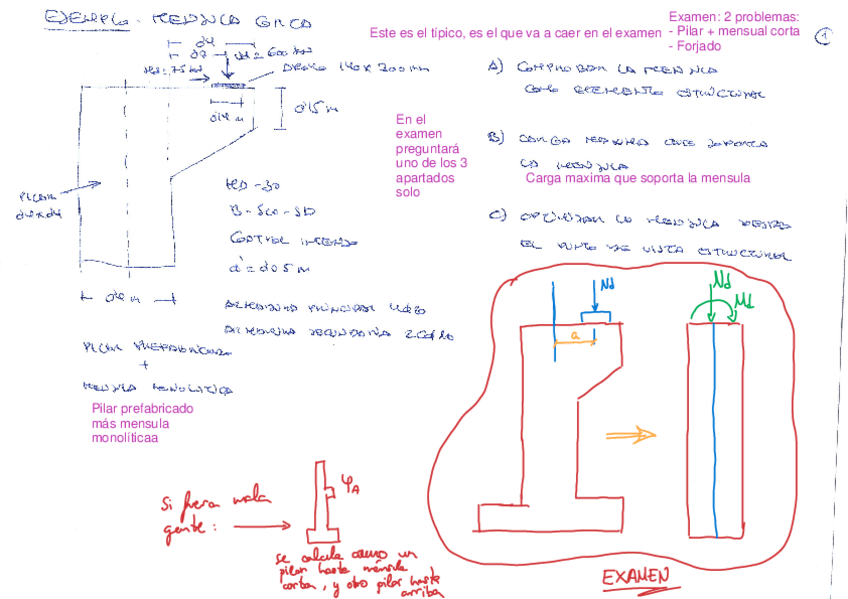 EJEMPLO. MENSULA CORTA
Este es el típico, es el que va a caer en el examen
Examen: 2 problemas:
- Pilar + mensual corta
- Forjado
1
A) COMPROBAR LA MENSULA
COMO ELEMENTO ESTRUCTURAL
En el
examen
preguntará
uno de los 3
apartados
solo
B) CARGA MAXIMA QUE SOPORTA
LA MENSULA
Carga maxima que soporta la mensula
C) OPTIMIZAR LA MENSULA DESDE
EL PUNTO DE VISTA ESTRUCTURAL
PILAR
HA-30
B-500-SD
CONTROL INTENSO
ARMADURA PRINCIPAL
ARMADURA SECUNDARIA
PILAR PREFABRICADO
+
MENSULA MONOLITICA
Pilar prefabricado
más mensula
monolíticaa
Nd
a
Nd
Md
Si fuera mala
gente:
φA
se calcula como un
pilar hasta ménsula
corta, y otro pilar hasta
arriba
EXAMEN